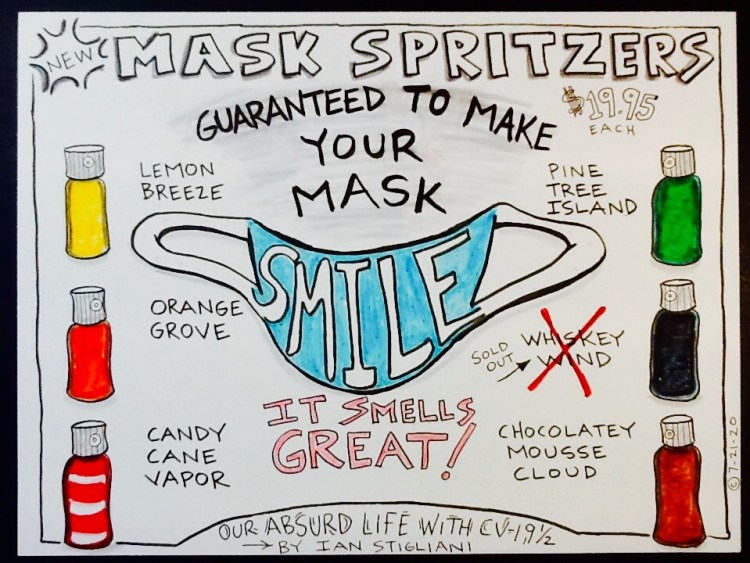 NEW
MASK SPRITZERS
GUARANTEED TO MAKE
YOUR
MASK
$19.95
EACH
LEMON
BREEZE
PINE
TREE
ISLAND
SMILE
ORANGE
GROVE
SOLD
OUT
WHISKEY
WIND
IT SMELLS
GREAT!
CANDY
CANE
VAPOR
CHOCOLATEY
MOUSSE
CLOUD
© 7-21-20
OUR ABSURD LIFE WITH CV-19½
→ BY IAN STIGLIANI